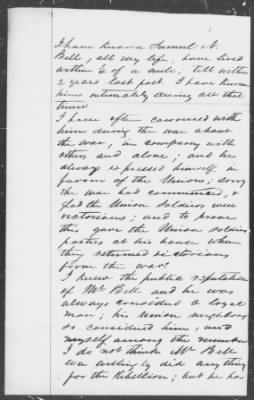 I have known Samuel N.
Bell, all my life, have lived
within ½ of a mile; till within
2 years last past. I have known
him intimately during all that
time
I have often conversed with
him during the war about
the war, in company with
others and alone; and he
always expressed himself in
favour of the Union; sorry
the war had commenced, &
glad the Union Soldiers were
victorious; and to prove
this gave the Union soldiers
parties at his house when
they returned victorious
from the war.
I knew the public reputation
of Mr Bell and he was
always considered a loyal
man; his Union neighbors
so considered him, and
myself among the number
I do not think Mr Bell
ever willingly did any thing
for the Rebellion; but he has